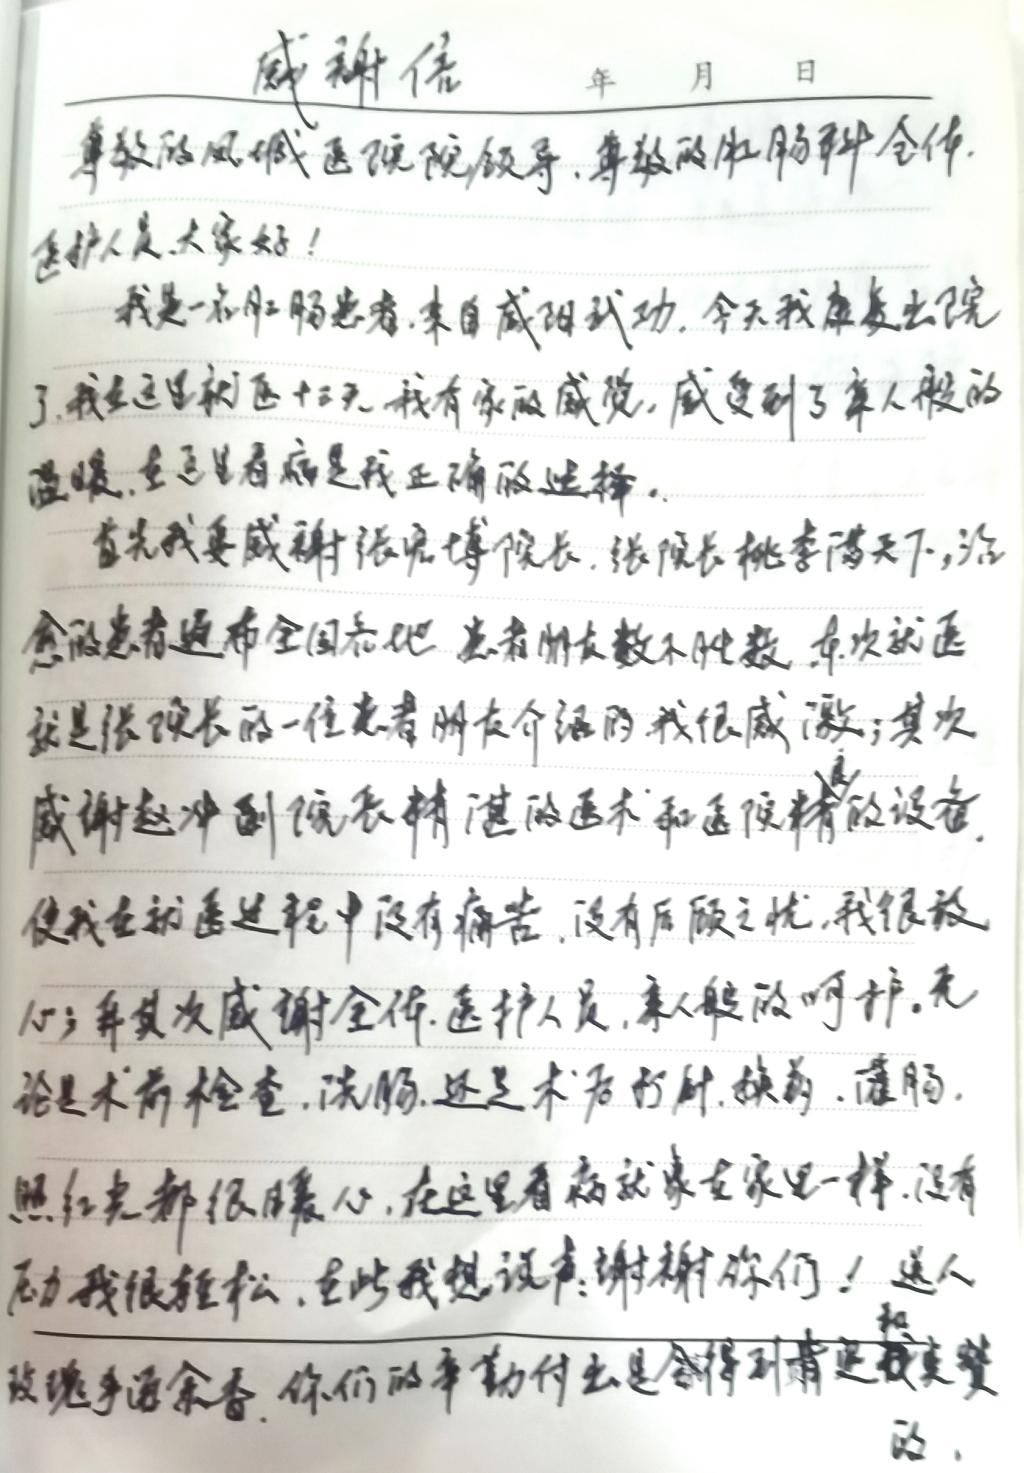 感谢信 年 月 日
尊敬的凤城医院院领导、尊敬的肛肠科全体
医护人员、大家好!
我是一名肛肠患者,来自咸阳武功,今天我康复出院
了,我在这里就医十三天,我有家的感觉,感受到了亲人般的
温暖,在这里看病是我正确的选择。
首先我要感谢张宏博院长,张院长桃李满天下,治
愈的患者遍布全国各地 患者朋友数不胜数,本次就医
就是张院长的一位患者朋友介绍的,我很感激;其次
感谢赵冲副院长精湛的医术和医院精良的设备,
使我在就医过程中没有痛苦,没有后顾之忧,我很放
心;再其次感谢全体医护人员,亲人般的呵护。无
论是术前检查、洗肠、还是术后打针、换药、灌肠、
照红光都很暖心,在这里看病就象在家里一样,没有
压力我很轻松,在此我想说声:谢谢你们!送人
玫瑰手留余香,你们的辛勤付出是会得到肯定和赞
的,